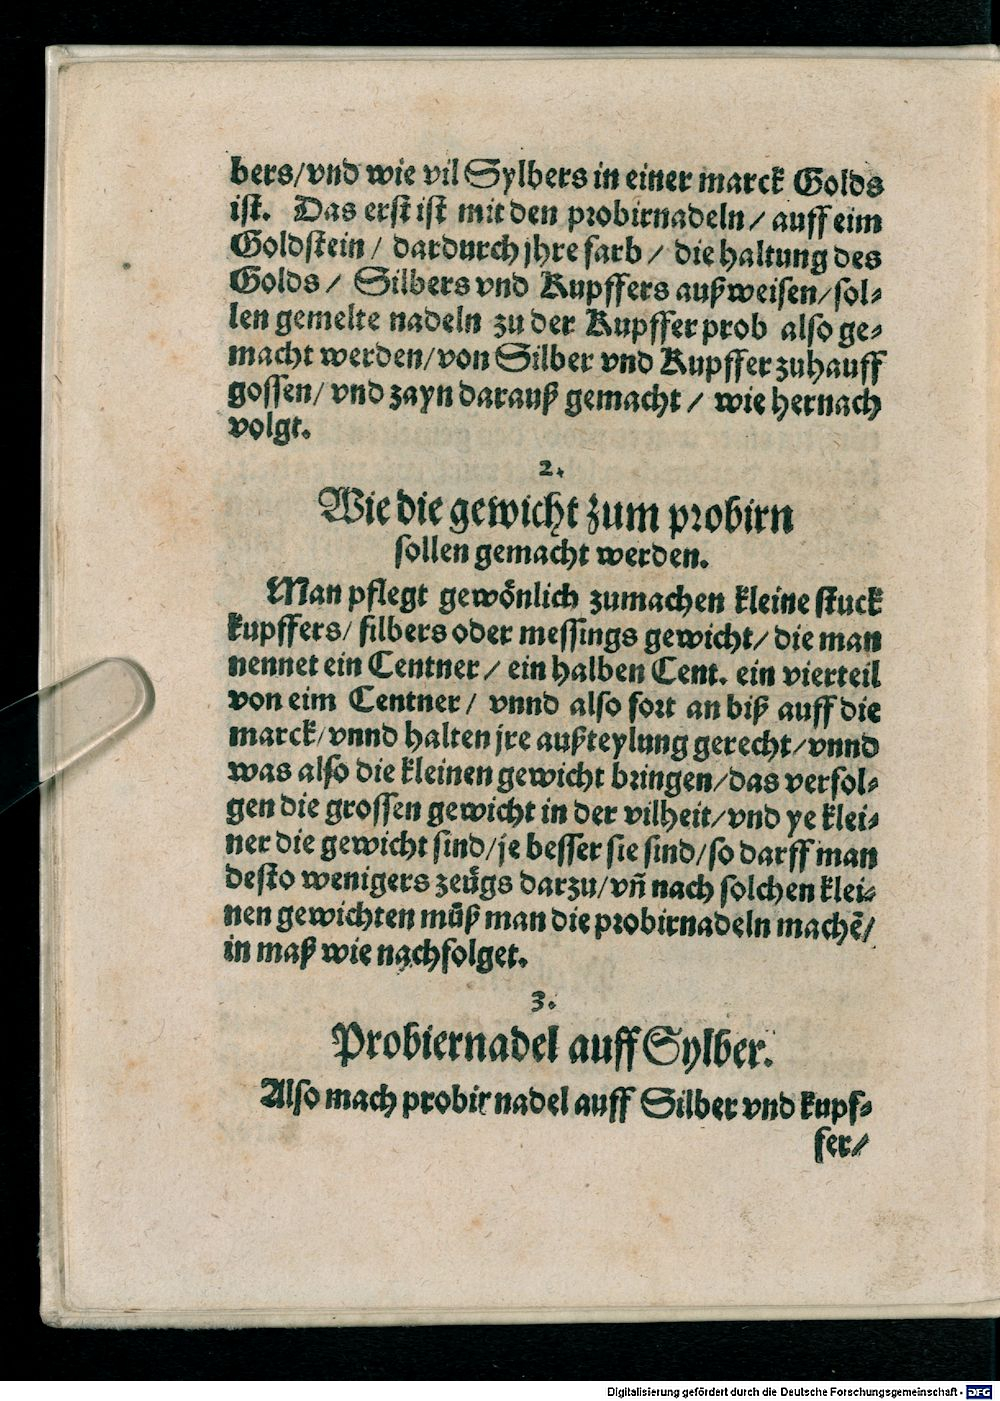 bers/vnd wie vil Sylbers in einer marck Golds
ist. Das erst ist mit den probirnadeln/ auff eim
Goldstein/ dardurch jhre farb/ die haltung des
Golds/ Silbers vnd Kupffers außweisen/ sol⸗
len gemelte nadeln zu der Kupffer prob also ge⸗
macht werden/ von Silber vnd Kupffer zuhauff
gossen/ vnd zayn darauß gemacht/ wie hernach
volgt.
2.
Wie die gewicht zum probirn
sollen gemacht werden.
Man pflegt gewönlich zumachen kleine stuck
kupffers/ silbers oder messings gewicht/ die man
nennet ein Centner/ ein halben Cent. ein vierteil
von eim Centner/ vnnd also fort an biß auff die
marck/ vnnd halten jre außteylung gerecht/ vnnd
was also die kleinen gewicht bringen/ das verfol⸗
gen die grossen gewicht in der vilheit/ vnd ye klei⸗
ner die gewicht sind/ je besser sie sind/ so darff man
desto wenigers zeügs darzu/ vñ nach solchen klei⸗
nen gewichten müß man die probirnadeln machẽ/
in maß wie nachfolget.
3.
Probiernadel auff Sylber.
Also mach probir nadel auff Silber vnd kupf⸗
fer/
Digitalisierung gefördert durch die Deutsche Forschungsgemeinschaft - DFG